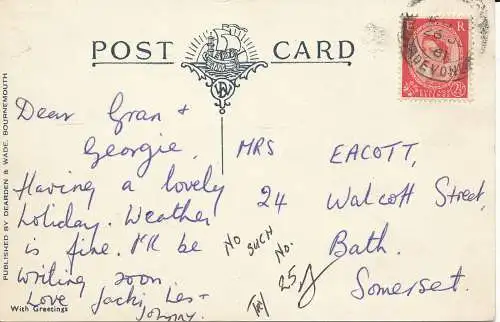 POST CARD
Dear Gran +
Georgie,
Having a lovely
holiday. Weather
is fine. I'll be
writing soon
Love Jacki, Les +
Johnny.
MRS EACOTT,
24 Walcott Street,
Bath.
Somerset.
NO SUCH NO.
Try 25
E R
2½D
61
DEVON
PUBLISHED BY DEARDEN & WADE, BOURNEMOUTH
With Greetings